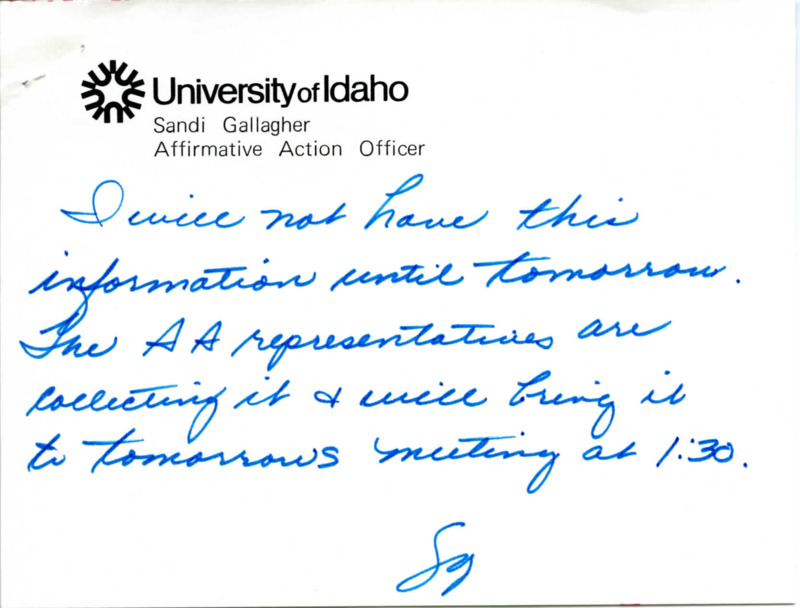 University of Idaho
Sandi Gallagher
Affirmative Action Officer
I will not have this
information until tomorrow.
The AA representatives are
collecting it & will bring it
to tomorrows meeting at 1:30.
Sg